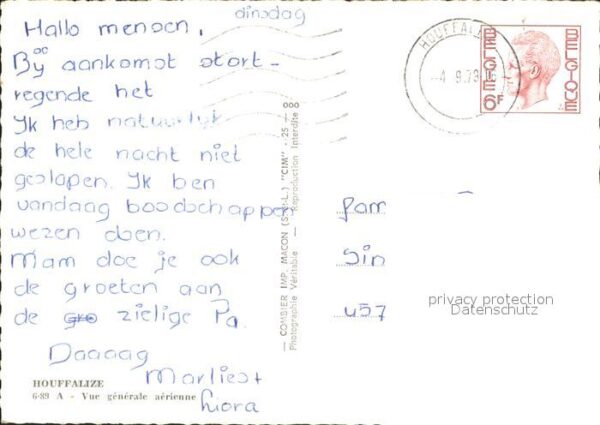 dinsdag
Hallo mensen,
Bij aankomst stort-
regende het
Ik heb natuurlijk
de hele nacht niet
geslapen. Ik ben
vandaag boodschappen
wezen doen.
Mam doe je ook
de groeten aan
de zielige Pa.
Daaaag
Marlies +
Liora
HOUFFALIZE
6-89 A - Vue générale aérienne
— COMBIER IMP. MACON (S.-&-L.) "CIM" - 25 - 000
Photographie Véritable — Reproduction Interdite
HOUFFALIZE
-4.9.79
BELGIË 6F
BELGIQUE
Fam
Sin
u57
privacy protection
Datenschutz